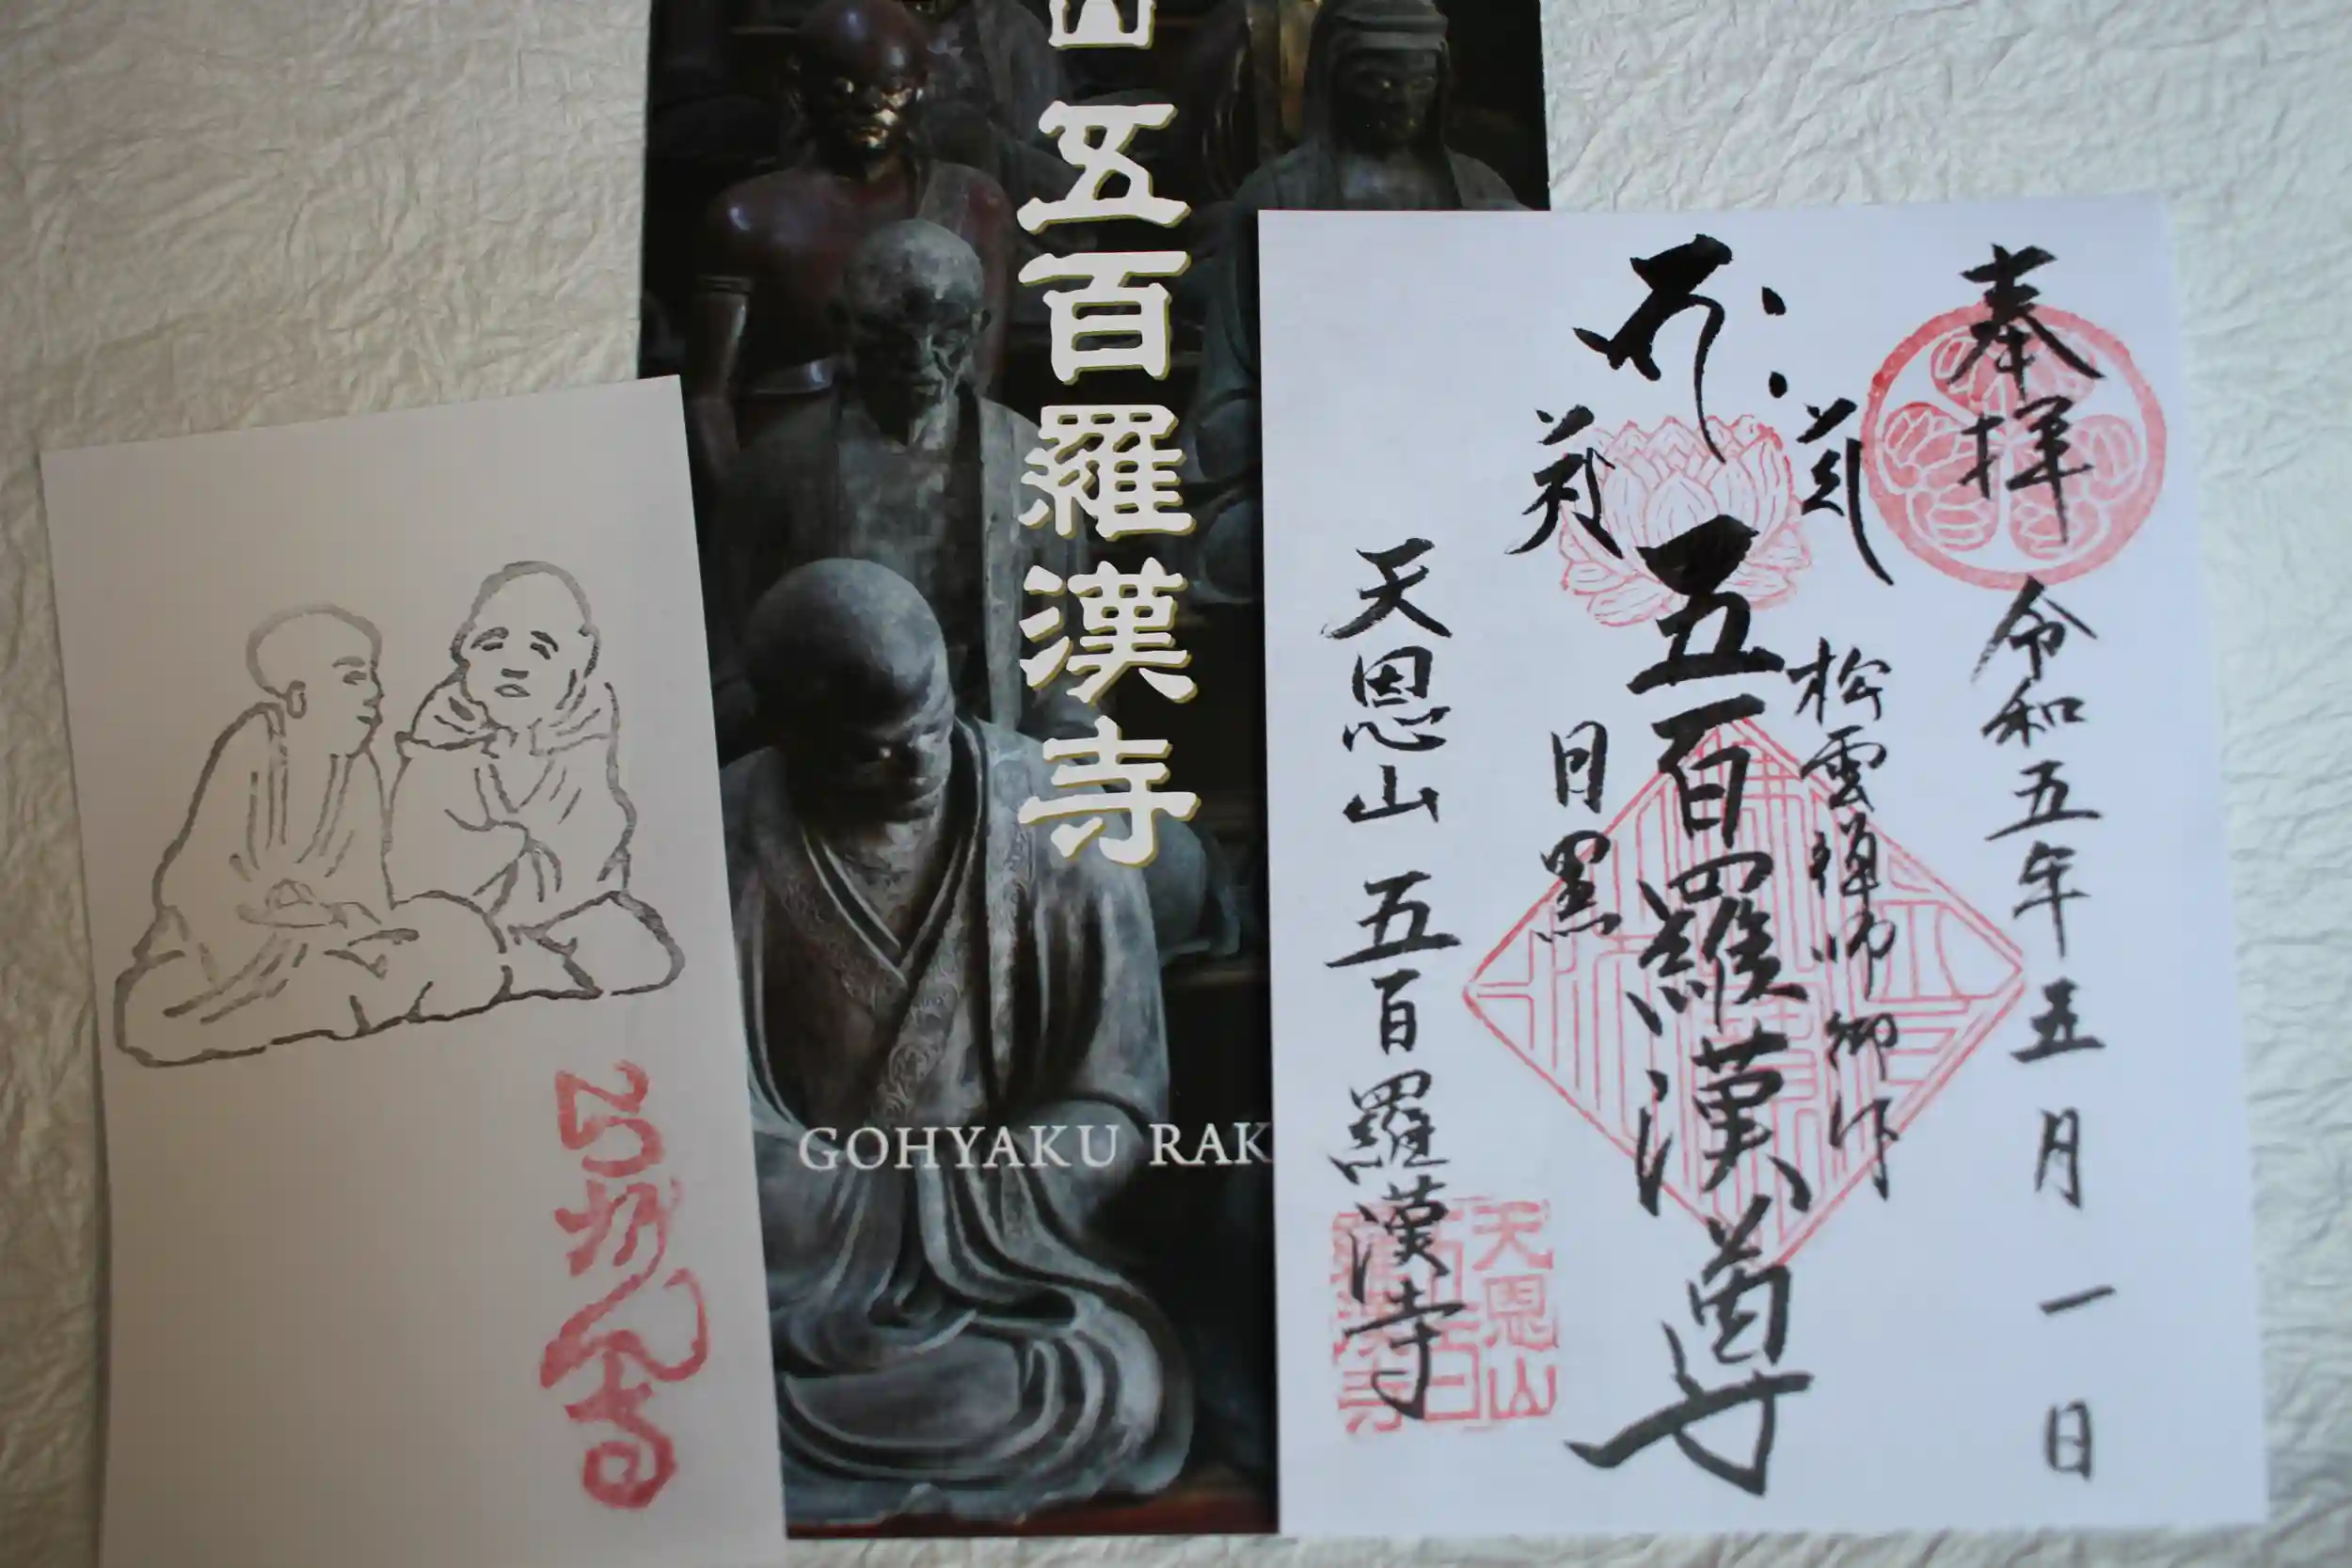 山 五百羅漢寺
GOHYAKU RAK
奉拝
令和五年五月一日
松雲禅師御作
五百羅漢尊
目黒
天恩山 五百羅漢寺
天恩山
五百
羅漢寺